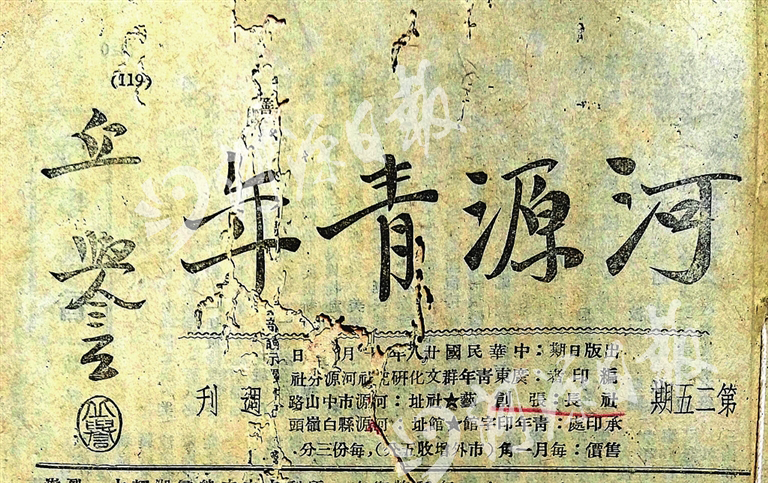 (119)
河源青年
丘譽
第二五期
週刊
出版日期：中華民國卅八年 月 日
編印者：廣東青年群文化研究社河源分社
社長：張創藝★社址：河源市中山路
承印處：青年印字館★館址：河源縣白嶺頭
售價：每月一角（市外增收五分），每份三分．